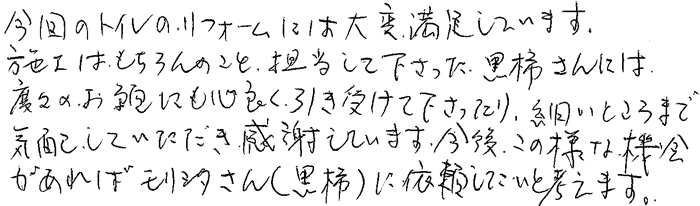 今回のトイレのリフォームには大変満足しています。
施工はもちろんのこと、担当して下さった黒柿さんには、
度々のお願いにも心良く引き受けて下さったり、細いところまで
気配りしていただき感謝しています。今後、この様な機会
があればモリシタさん(黒柿)に依頼したいと考えます。